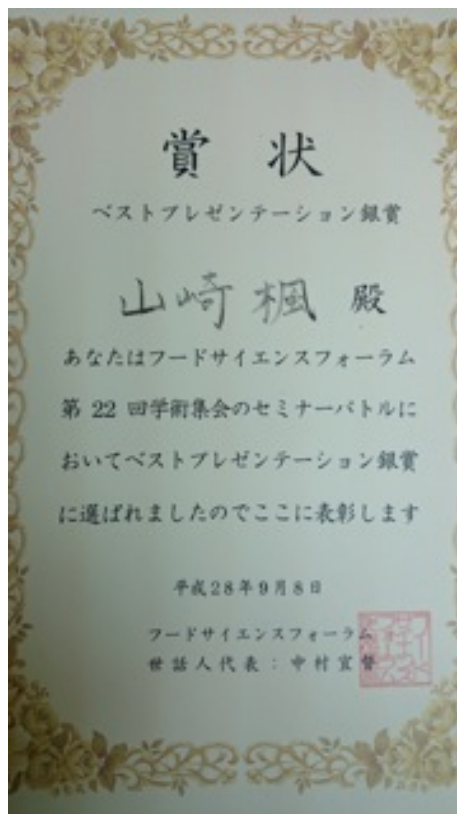 賞 状
ベストプレゼンテーション銀賞
山崎 楓 殿
あなたはフードサイエンスフォーラム
第 22 回学術集会のセミナーバトルに
おいてベストプレゼンテーション銀賞
に選ばれましたのでここに表彰します
平成28年9月8日
フードサイエンスフォーラム
世話人代表：中村宜督